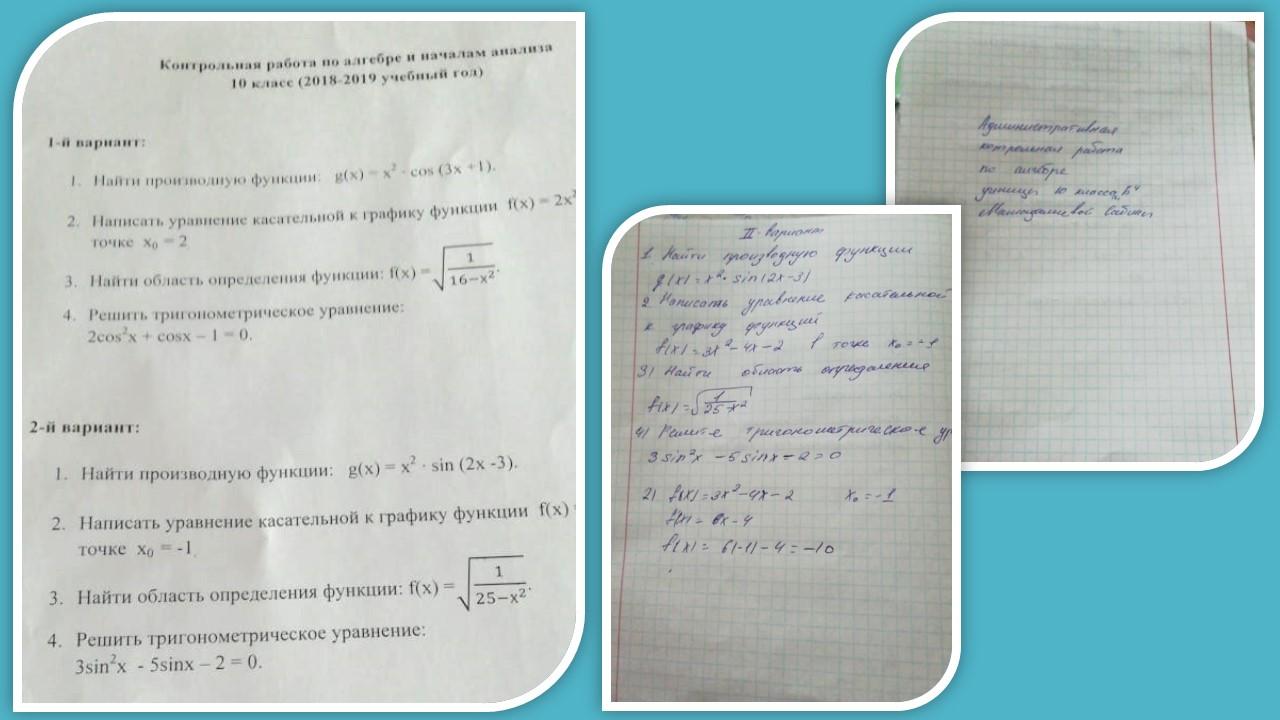 Контрольная работа по алгебре и началам анализа
10 класс (2018-2019 учебный год)
1-й вариант:
1. Найти производную функции: g(x) = x² · cos (3x +1).
2. Написать уравнение касательной к графику функции f(x) = 2x²
точке x₀ = 2
3. Найти область определения функции: f(x) = √(1/(16−x²)).
4. Решить тригонометрическое уравнение:
2cos²x + cosx – 1 = 0.
2-й вариант:
1. Найти производную функции: g(x) = x² · sin (2x -3).
2. Написать уравнение касательной к графику функции f(x)
точке x₀ = -1.
3. Найти область определения функции: f(x) = √(1/(25−x²)).
4. Решить тригонометрическое уравнение:
3sin²x - 5sinx – 2 = 0.
II-вариант
1. Найти производную функции
g(x) = x²· sin(2x-3)
2. Написать уравнение касательной
к графику функций
f(x) = 3x²-4x-2 в точке x₀ = -1
3) Найти область определения
f(x) = √(1/(25-x²))
4) Решите тригонометрическое ур
3sin²x -5sinx-2=0
2) f(x) = 3x²-4x-2 x₀=-1
f'(x) = 6x-4
f'(x) = 6(-1)-4=-10
Административная
контрольная работа
по алгебре
ученицы 10 класса „Б"